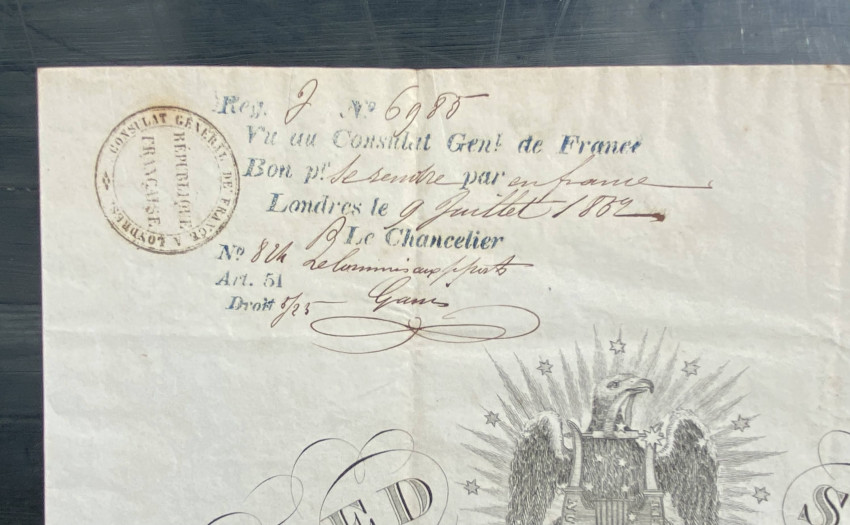 CONSULAT GÉNÉRAL DE FRANCE A LONDRES
RÉPUBLIQUE
FRANÇAISE.
Reg. J Nº 6985
Vu au Consulat Genl. de France
Bon pr. se rendre par en france
Londres le 9 Juillet 1852
Le Chancelier
Nº 824 Le Commis aux pports
Art. 51
Droit 5/25
ED
S